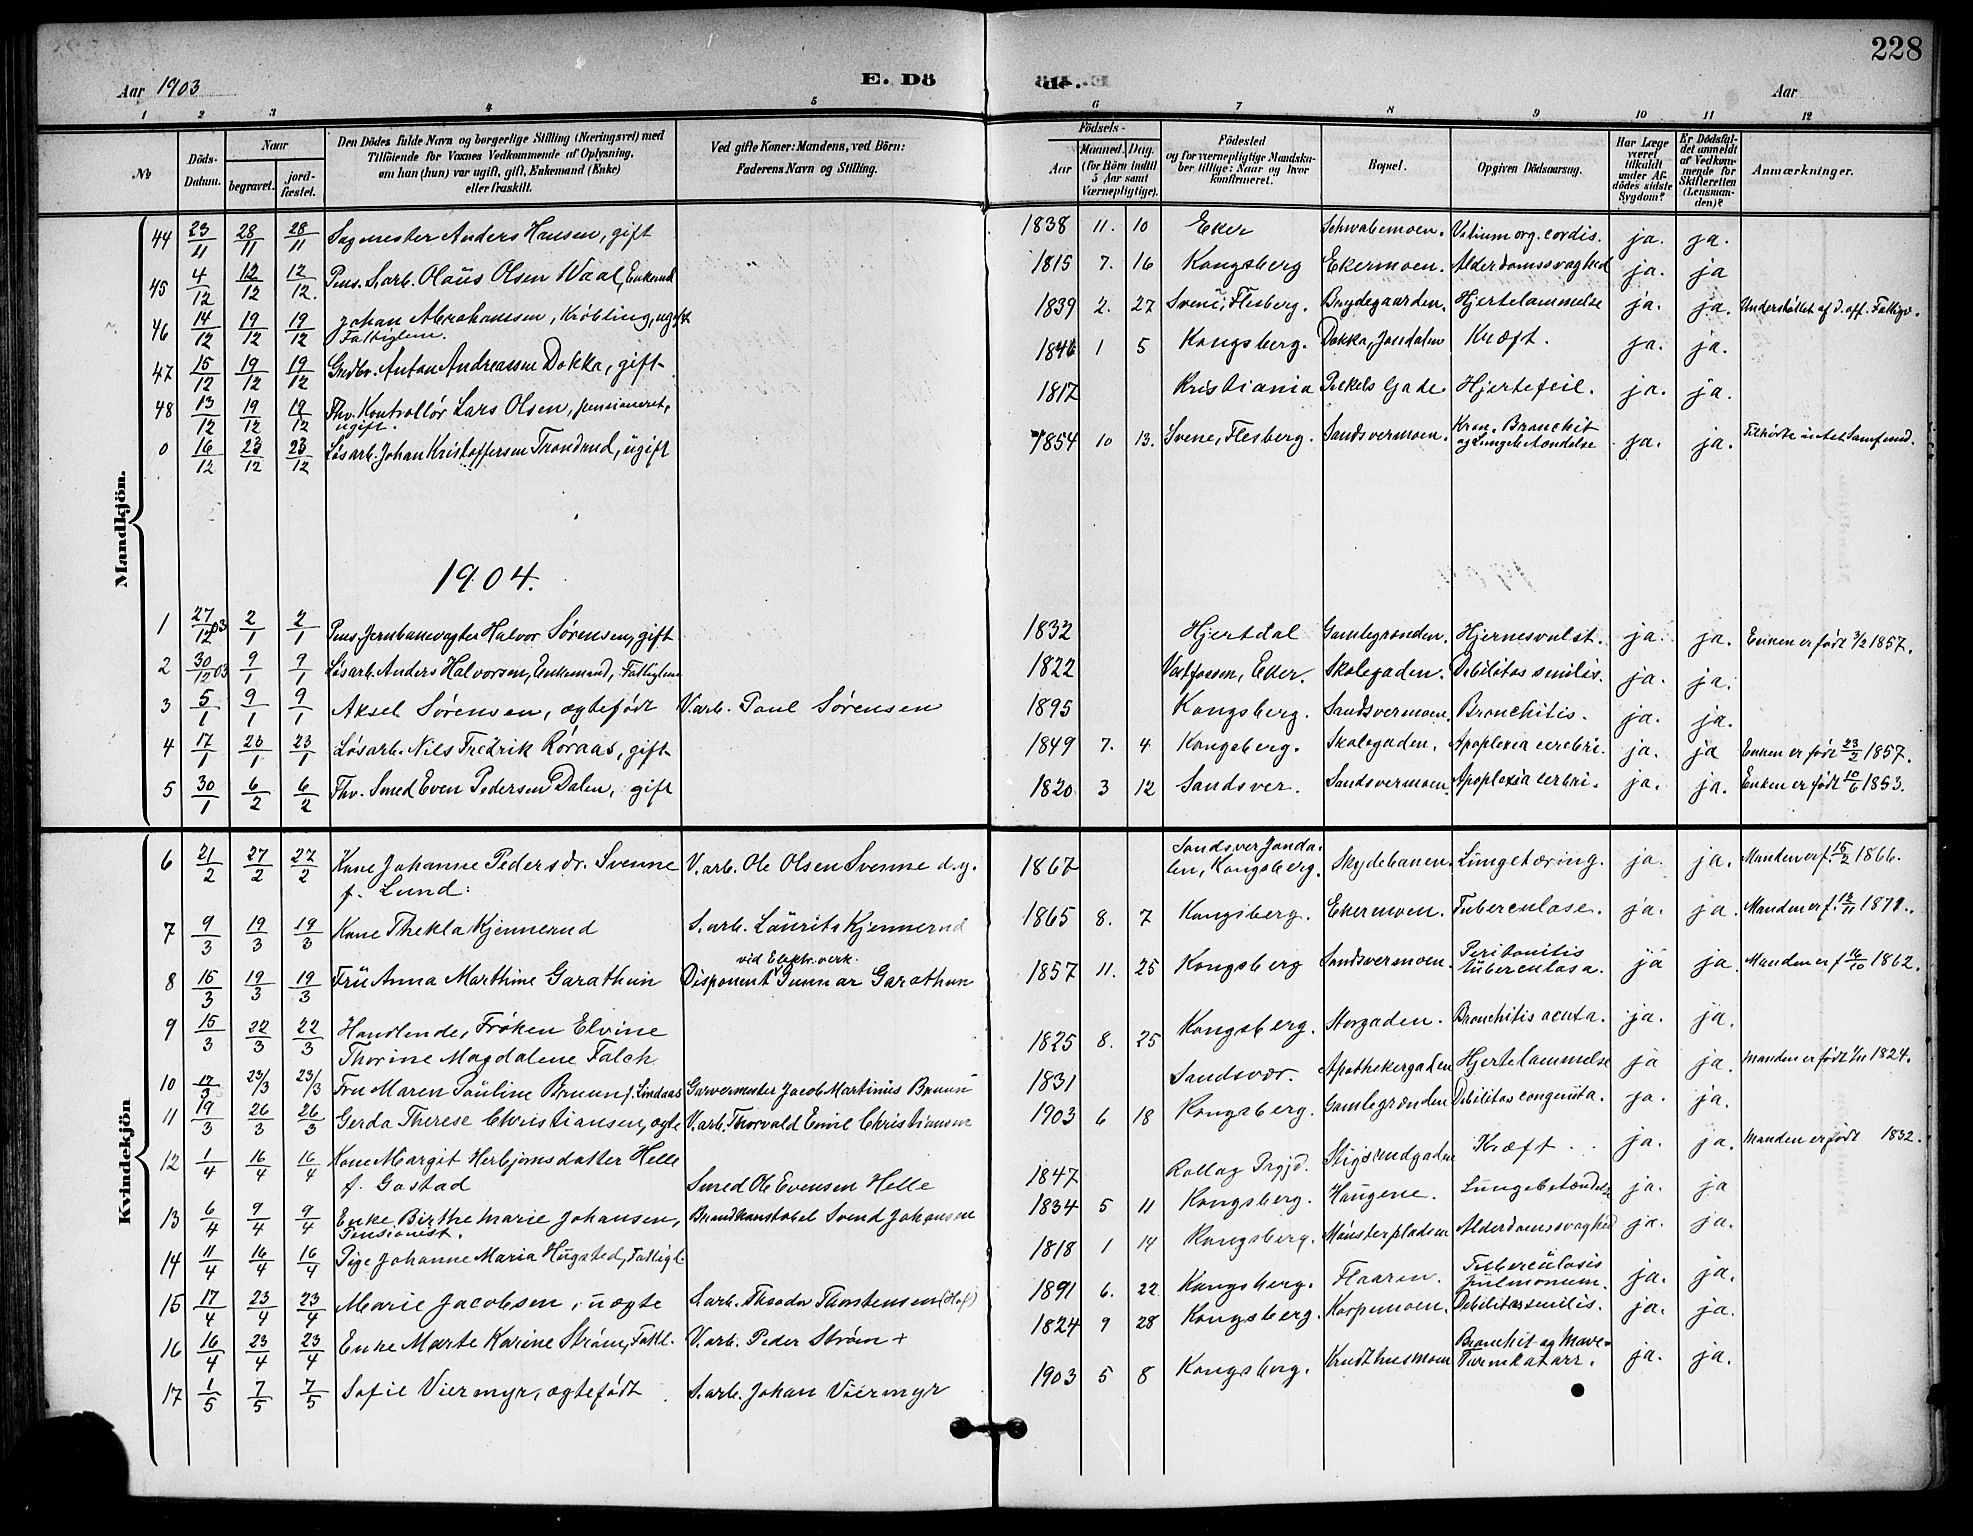 228
Aar 1903 E. Dö de. Aar
1 2 3 4 5 6 7 8 9 10 11 12
No
Döds-Datum.
Naar begravet. jordfæstet.
Den Dödes fulde Navn og borgerlige Stilling (Næringsvei) med
Tilföiende for Voxnes Vedkommende af Oplysning,
om han (hun) var ugift, gift, Enkemand (Enke)
eller fraskilt.
Ved gifte Koner: Mandens, ved Börn:
Faderens Navn og Stilling.
Födsels-
Aar Maaned. Dag.
(for Börn indtil 5 Aar samt Værnepligtige).
Födested
og for værnepligtige Mandskaber tillige: Naar og hvor konfirmeret.
Bopæl.
Opgiven Dödsaarsag.
Har Læge været tilkaldt under Afdödes sidste Sygdom?
Er Dödsfaldet anmeldt af Vedkommende for Skifteretten (Lensmanden)?
Anmærkninger.
Mandkjön.
44 23/11 28/11 28/11 Sagmester Anders Hansen, gift 1838 11. 10 Eker Schwabemoen. Vitium org. cordis. ja. ja.
45 4/12 12/12 12/12. Pens. S.arb. Olaus Olsen Waal, Enkemd 1815 7. 16 Kongsberg Ekermoen. Alderdomssvaghed ja. ja
46 14/12 19/12 19/12 Johan Abrahamsen, Krøbling, ugift Fattiglem. 1839 2. 27 Svene, Flesberg. Brydegaarden. Hjertelammelse ja. ja. Underholdet af d. off. Fattigv.
47 15/12 19/12 19/12 Grdbr. Anton Andreassen Dokka, gift 1846 1 5 Kongsberg. Dokka, Jondalen Kræft. ja. ja.
48 13/12 19/12 19/12 Fhv. Kontrollør Lars Olsen, pensioneret, ugift. 1817 Kristiania Peckels Gade. Hjertefeil. ja. ja.
0 16/12 23/12 23/12 Løsarb. Johan Kristoffersen Trondrud, ugift 1854 10 13. Svene, Flesberg. Sandsvermoen. Kron. Bronchit og Lungebetændelse ja. ja. Tilhørte intet Samfund.
1904.
1 27/12 03 2/1 2/1 Pens. Jernbanevogter Halvor Sørensen, gift 1832 Hjertdal Gamlegrønden. Hjernesvulst. ja. ja. Enken er født 3/2 1857.
2 30/12 03 9/1 9/1 Løsarb. Anders Halvorsen, Enkemand, Fattiglem 1822 Vestfossen, Eker. Skolegaden. Debilitas senilis. ja. ja.
3 5/1 9/1 9/1 Aksel Sørensen, ægtefødt V.arb. Paul Sørensen 1895 Kongsberg. Sandsvermoen. Bronchitis. ja. ja.
4 17/1 23/1 23/1 Løsarb. Nils Fredrik Røraas, gift 1849 7. 4 Kongsberg. Skolegaden. Apoplexia cerebri. ja. ja Enken er født 23/2 1857.
5 30/1 6/2 6/2 Fhv. Smed Even Pedersen Dalen, gift 1820 3 12 Sandsver. Sandsvermoen. Apoplexia cerbri. ja. ja. Enken er født 10/6 1853.
Kvindekjön
6 21/2 27/2 27/2 Kone Johanne Pedersdr. Svenne f. Lund: V.arb. Ole Olsen Svenne d.y. 1867 Sandsver Jondalen, Kongsberg. Skydebanen. Lungetæring. ja. ja. Manden er f. 15/2 1866.
7 9/3 19/3 19/3 Kone Thekla Kjennerud S.arb. Laurits Kjennerud 1865 8. 7 Kongsberg. Ekermoen. Tuberculose. ja. ja. Manden er f. 12/11 1871.
8 15/3 19/3 19/3 Frü Anna Marthine Garathun Disponent vid Elektr.verk. Gunnar Garathun 1857 11. 25 Kongsberg Sandsvermoen. Peritonitis tuberculosa. ja ja. Manden er f 16/10 1862.
9 15/3 22/3 22/3 Handlende, Frøken Elvine Thorine Magdalene Falck 1825 8. 25 Kongsberg. Storgaden. Bronchitis acuta. ja. ja.
10 17/3 23/3 23/3 Fru Maren Pauline Bruun f. Lindaas Garvermester Jacob Martinus Bruun 1831 Sandsvær. Apothekergaden Hjertelammelse ja ja. Manden er født 1824.
11 19/3 26/3 26/3 Gerda Therese Christiansen, ægte V.arb. Thorvald Emil Christiansen 1903 6 18 Kongsberg. Gamlegrønden Debilitas congenita. ja. ja.
12 1/4 16/4 16/4 Kone Margit Herbjørnsdatter Helle f. Gostad Smed Ole Evensen Helle 1847 Rollag Prgjd. Stigsrudgaden Kræft. ja. ja. Manden er født 1832.
13 6/4 9/4 9/4 Enke Birthe Marie Johansen, Pensionist. Brandkonstabel Svend Johansen 1834 5 11 Kongsberg. Haugene. Lungebetændelse ja. ja
14 11/4 16/4 16/4 Pige Johanne Maria Hugsted, Fattigl. 1818 1 14 Kongsberg. Mønsterpladsen Alderdomssvaghed ja. ja.
15 17/4 23/4 23/4 Marie Jacobsen, uægte S.arb. Theodor Thorstensen (Hof) 1891 6. 22 Kongsberg. Flaaren. Tuberculosis pulmonum. ja. ja.
16 16/4 23/4 23/4 Enke Marte Karine Strøm, Fattl. V.arb. Peder Strøm + 1824 9 28 Kongsberg. Korpemoen. Debilitas senilis. ja. ja.
17 1/5 7/5 7/5 Sofie Viermyr, ægtefødt S.arb. Johan Viermyr 1903 5 8 Kongsberg. Krudthusmoen Bronchit og Mave-Tarmkatarr. ja. ja.